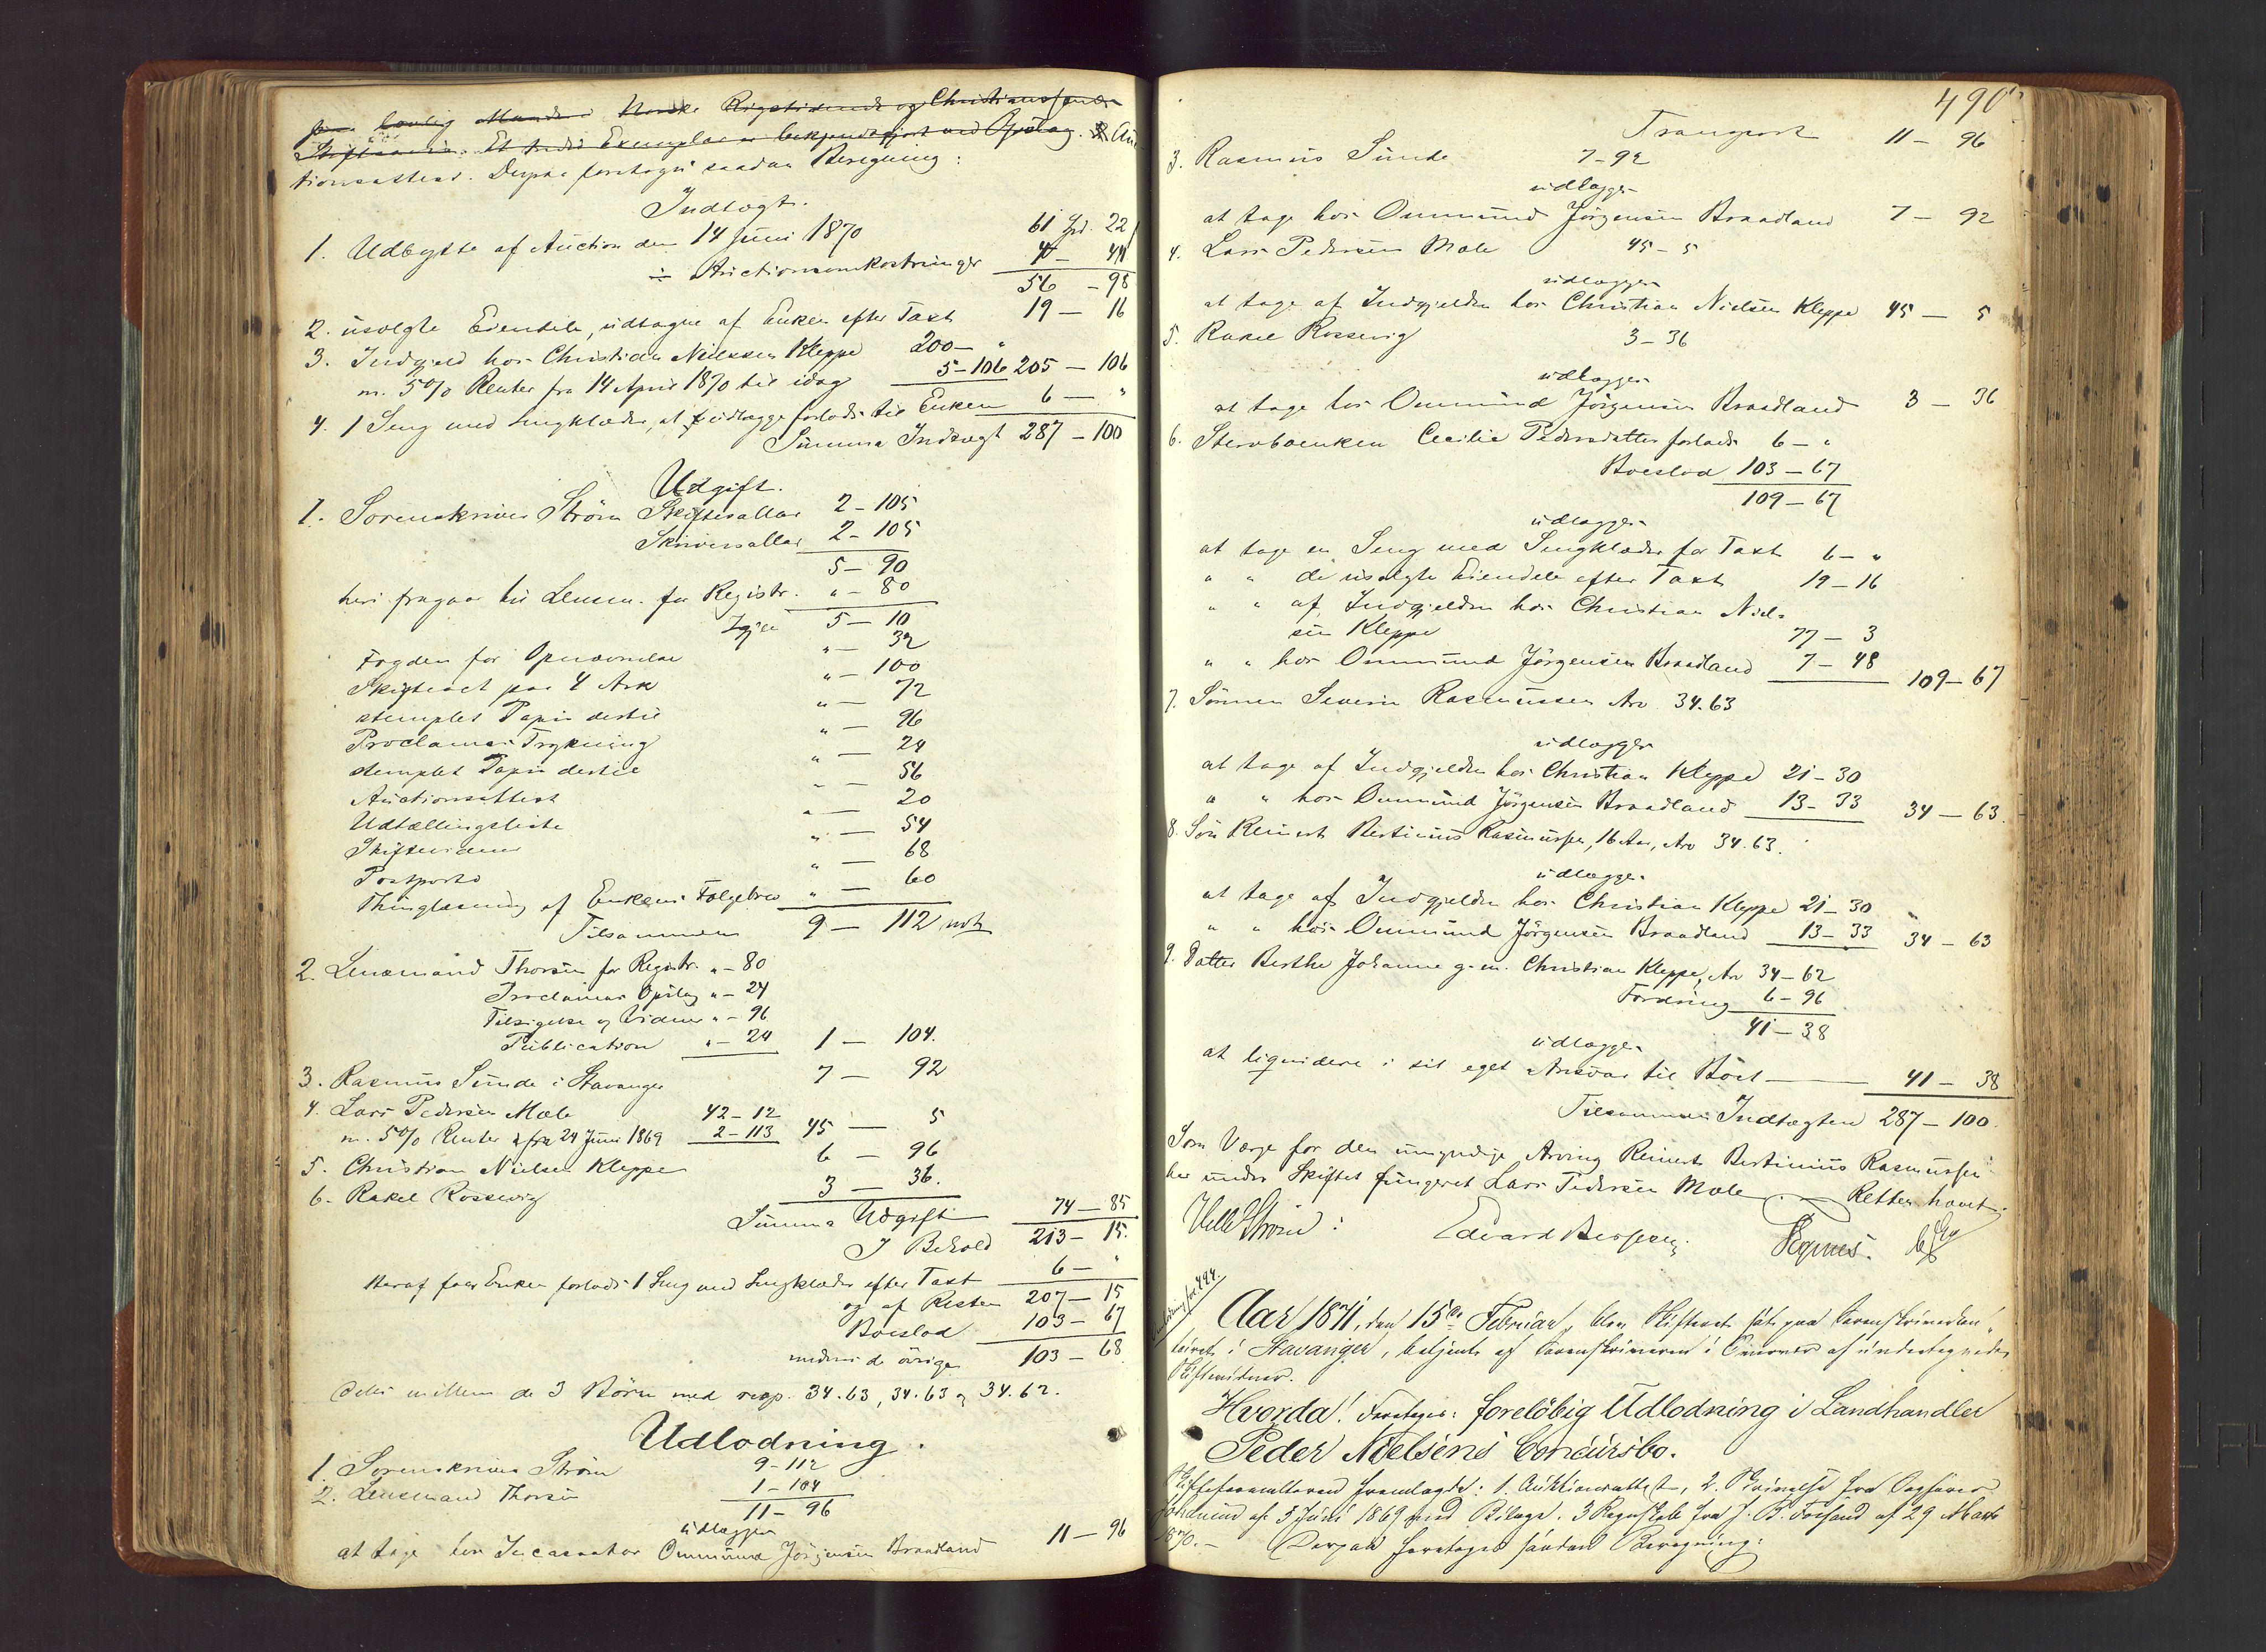 lovlig Maade i Norske Rigstidende og Christianssands
Stiftsavis. Et tredie Exemplar er bekjendtgjort ved Opslag. Auc
tionsattest. Derpaa foretoges saadan Beregning:
Indtægt.
1. Udbytte af Auction den 14 Juni 1870 61 Spd. 22
÷ Auctionsomkostninger 4 - 44
56 - 98
2. usolgte Eiendele, udtagne af Enken efter Taxt 19 - 16
3. Indgjeld hos Christian Nielsen Kleppe 200 - "
m. 5% Renter fra 14 April 1870 til idag 5 - 106 205 - 106
4. 1 Seng med Sengklæder, at udlægge forlods til Enken 6 - "
Summa Indtægt 287 - 100
Udgift.
1. Sorenskriver Strøm Skiftesallar 2 - 105
Skriversallar 2 - 105
5 - 90
heri fragaar til Lensm. for Registr. " - 80
Igjen 5 - 10
Fogden for Opnævnelse " - 32
Skifteact paa 4 Ark " - 100
stemplet Papir dertil " - 72
Proclamas Trykning " - 96
stemplet Papir dertil " - 24
Auctionsattest " - 56
Udtællingsliste " - 20
Skiftevidner " - 54
Postporto " - 68
Thinglæsning af Enkens Følgebrev " - 60
Tilsammen 9 - 112
2. Lensmand Thorsen for Registr. " - 80
Proclamas Opslag " - 24
Tilsigelse og Vidner " - 96
Publication " - 24 1 - 104.
3. Rasmus Sunde i Stavanger 7 - 92
4. Lars Pedersen Mæle 42 - 12
m. 5% Renter fra 24 Juni 1869 2 - 113 45 - 5
5. Christian Nielsen Kleppe 6 - 96
6. Rakel Rossevig 3 - 36.
Summa Udgift 74 - 85
I Behold 213 - 15.
Heraf faar Enken forlods 1 Seng med Sengklæder efter Taxt 6 - "
207 - 15
og af Resten
Boeslod 103 - 67
medens de øvrige 103 - 68
deles mellem de 3 Børn med resp. 34.63, 34.63 og 34.62.
Udlodning.
1. Sorenskriver Strøm 9 - 112
2. Lensmand Thorsen 1 - 104
11 - 96
udlægges
at tage hos Incassator Ommund Jörgensen Braadland 11 - 96
490
Transport 11 - 96
3. Rasmus Sunde 7 - 92
udlægges
at tage hos Ommund Jörgensen Braadland 7 - 92
4. Lars Pedersen Mæle 45 - 5
udlægges
at tage af Indgjelden hos Christian Nielsen Kleppe 45 - 5
5. Rakel Rossevig 3 - 36
udlægges
at tage hos Ommund Jörgensen Braadland 3 - 36
6. Stervboenken Cecilie Pedersdatter forlods 6 - "
Boeslod 103 - 67
109 - 67
udlægges
at tage en Seng med Sengklæder for Taxt 6 - "
" " de usolgte Eiendele efter Taxt 19 - 16
" " af Indgjelden hos Christian Niel-
sen Kleppe 77 - 3
" " hos Ommund Jörgensen Braadland 7 - 48 109 - 67
7. Sønnen Severin Rasmussen Arv 34.63
udlægges
at tage af Indgjelden hos Christian Kleppe 21 - 30
" " hos Ommund Jörgensen Braadland 13 - 33 34 - 63.
8. Søn Reinert Bertinius Rasmussen, 16 Aar, Arv 34.63.
udlægges
at tage af Indgjelden hos Christian Kleppe 21 - 30
" " hos Ommund Jörgensen Braadland 13 - 33 34 - 63
9. Datter Berthe Johanne g. m. Christian Kleppe, Arv 34 - 62
Fordring 6 - 96
41 - 38
udlægges
at liqvidere i sit eget Ansvar til Boet 41 - 38
Tilsammen Indtægten 287 - 100.
Som Værge for den umyndige Arving Reinert Bertinius Rasmussen
har under Skiftet fungeret Lars Pedersen Mæle. Retten hævet.
Strøm: Edvard
Aar 1871, den 15de Februar, blev Skifteret sat paa Sorenskrivercon-
toiret i Stavanger, betjent af Sorenskriveren i Overvær af undertegnede
Skiftevidner.
Hvorda! Foretoges: foreløbig Udlodning i Landhandler
Peder Nielsens Concursbo.
Skifteforvalteren fremlagde: 1. Auktionsattest, 2. Skrivelse fra Sagfører
af 5 Juni 1869 med Bilage. 3 Regnskab fra J. B. Forsand af 29 Marts
1870. — Derpaa foretoges saadan Beregning: